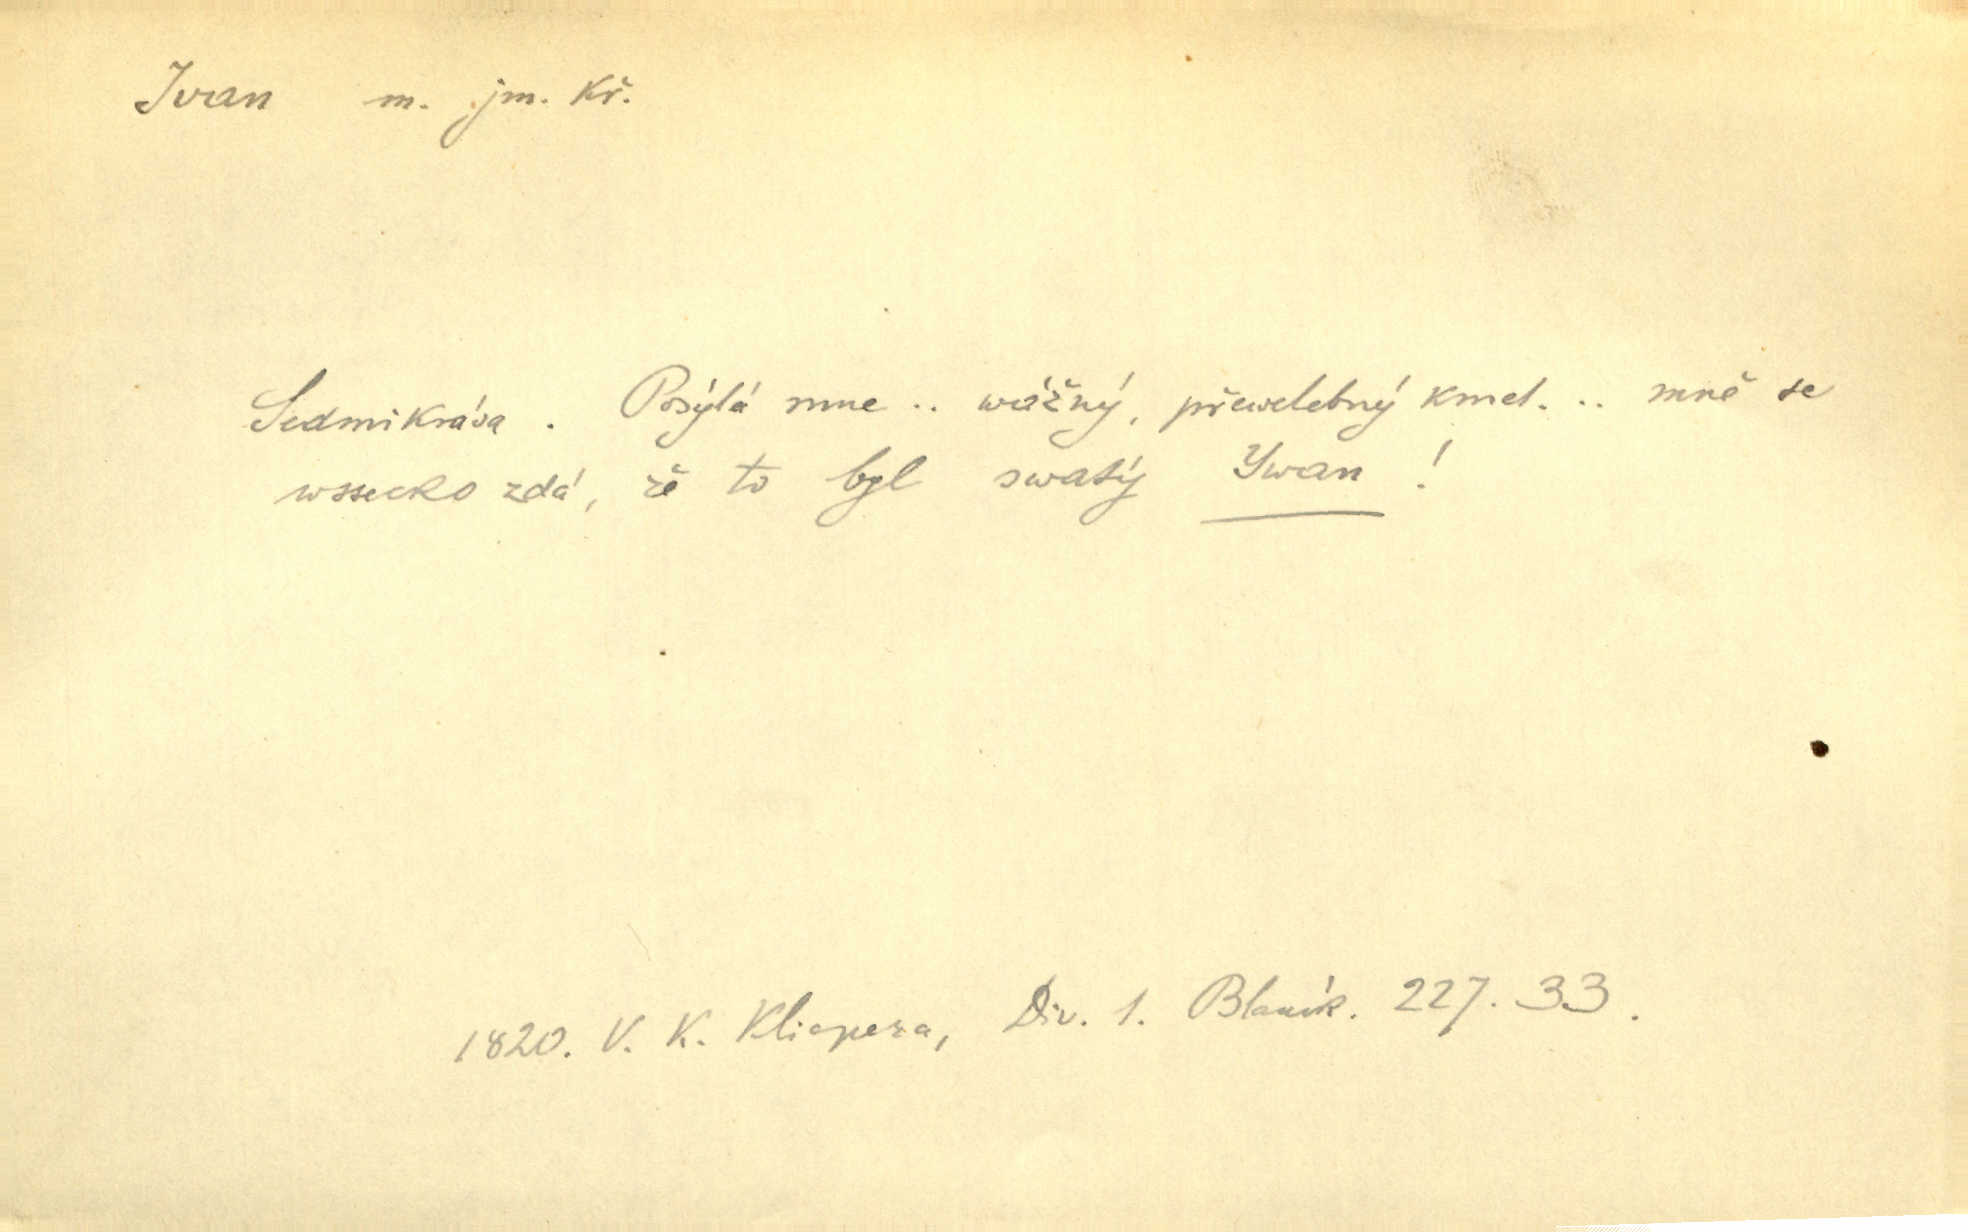 Ivan m. jm. kř.
Sedmikráva. Posýlá mne .. wážný, přewelebný kmet. .. mně se
wssecko zdá, že to byl swatý Ywan!
1820. V. K. Klicpera, Div. 1. Blaník. 227. 33.